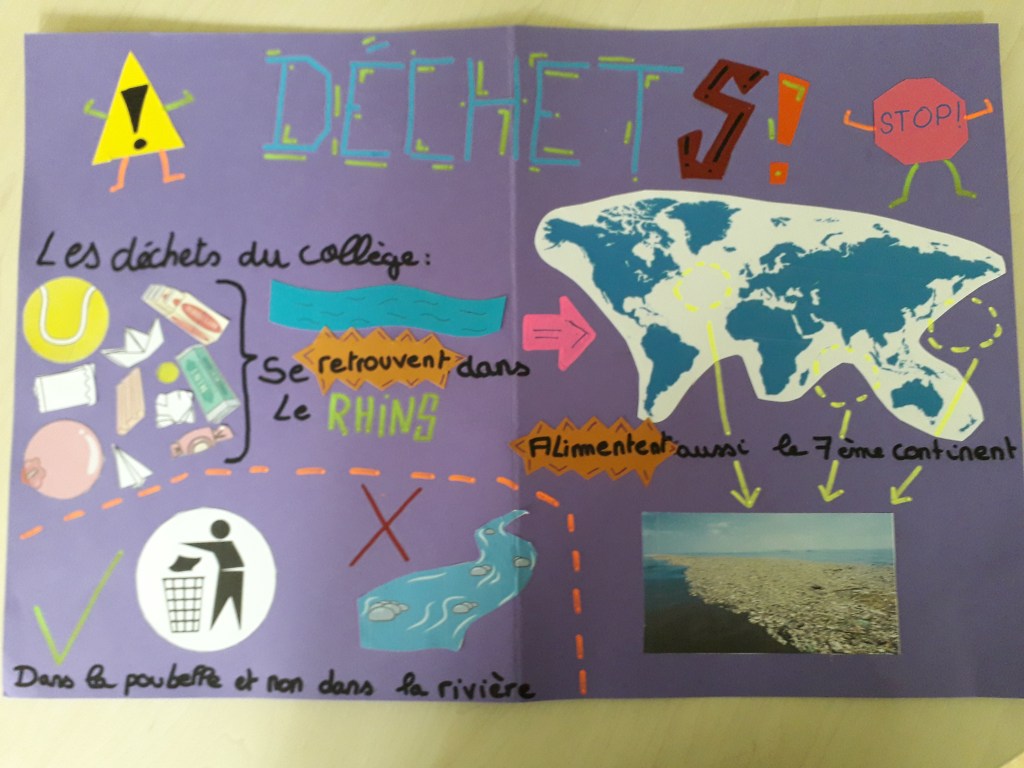 DÉCHETS!
STOP!
Les déchets du collège:
Se retrouvent dans
Le RHINS
Alimentent aussi le 7ème continent
Dans la poubelle et non dans la rivière